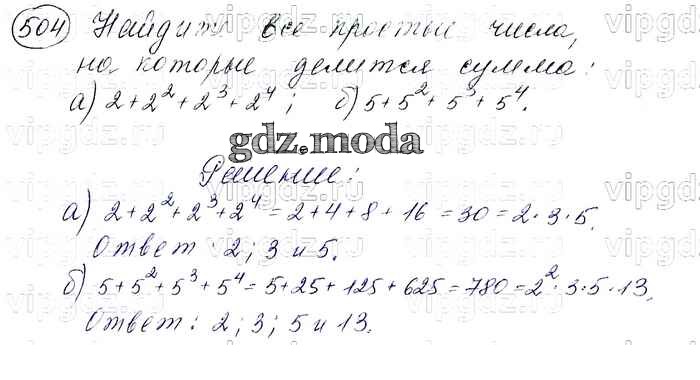 504 Найдите все простые числа,
на которые делится сумма:
а) 2+2²+2³+2⁴; б) 5+5²+5³+5⁴.
gdz.moda
Решение:
а) 2+2²+2³+2⁴=2+4+8+16=30=2·3·5.
Ответ: 2; 3 и 5.
б) 5+5²+5³+5⁴=5+25+125+625=780=2²·3·5·13.
Ответ: 2; 3; 5 и 13.